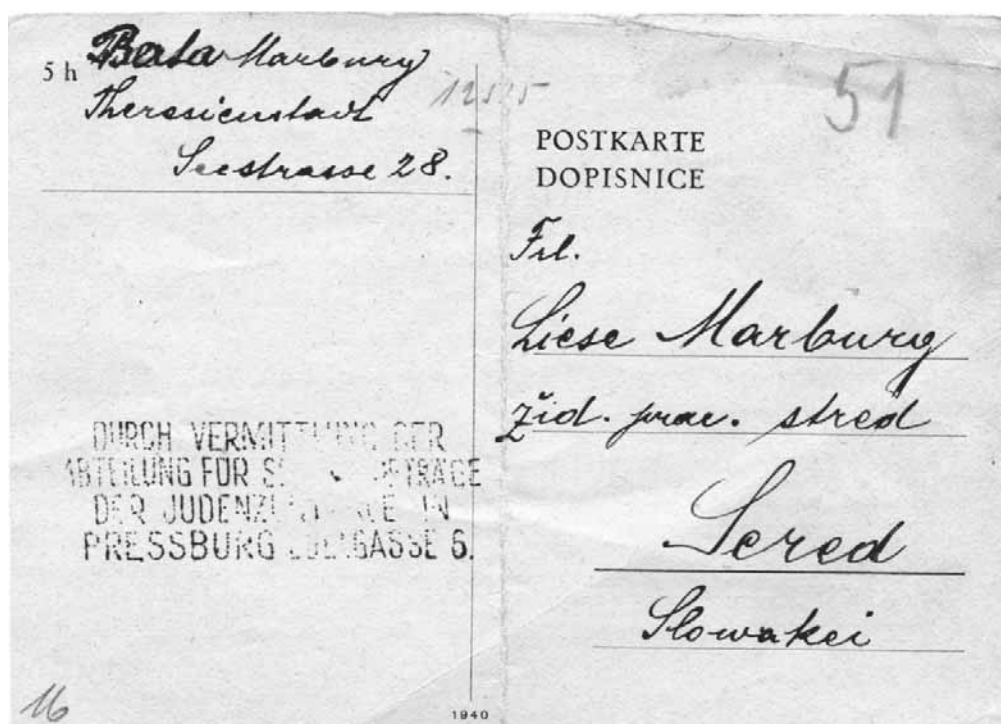 5 h Berta Marburg
Theresienstadt
Seestrasse 28.
12525
51
POSTKARTE
DOPISNICE
Frl.
Liese Marburg
žid. prac. stred
Sered
Slowakei
DURCH VERMITTLUNG DER
ABTEILUNG FÜR
DER JUDENZENTRALE IN
PRESSBURG EDELGASSE 6.
16
1940